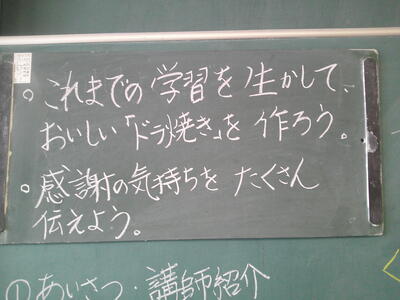 。これまでの学習を生かして、
おいしい「ドラ焼き」を作ろう。
。感謝の気持ちをたくさん
伝えよう。
①あいさつ・講師紹介